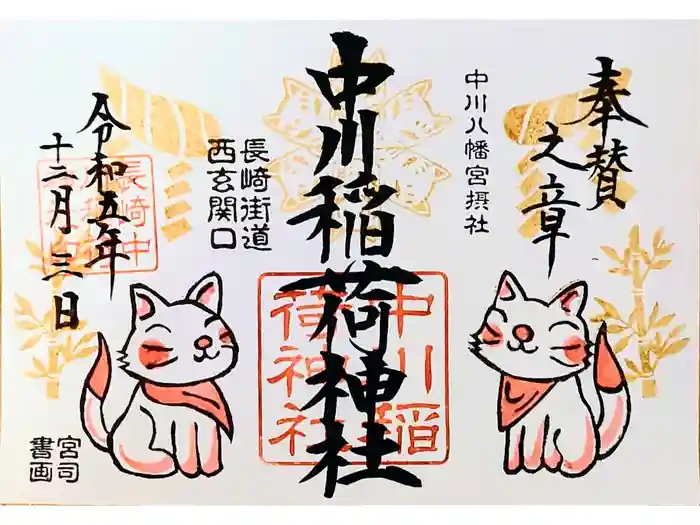 奉賛
之章
中川八幡宮摂社
中川稲荷神社
中川稲
荷神社
長崎街道
西玄関口
令和五年
十二月三日
長崎中
宮司
書画